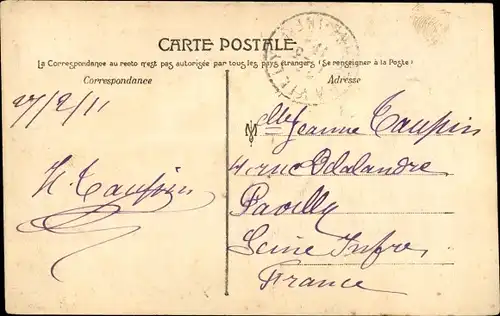 CARTE POSTALE
La Correspondance au recto n'est pas autorisée par tous les pays étrangers (Se renseigner à la Poste)
Correspondance
Adresse
27/2/11
H. Taupin
M
Mlle Jeanne Taupin
4 rue Odalandre
Pavilly
Seine Infre
France